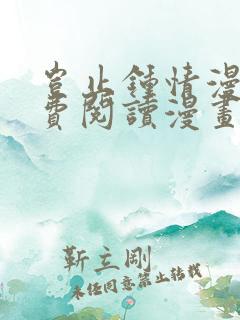 岂止鍾情漫
費閱讀漫畫
靳立剛
未经同意禁止转载